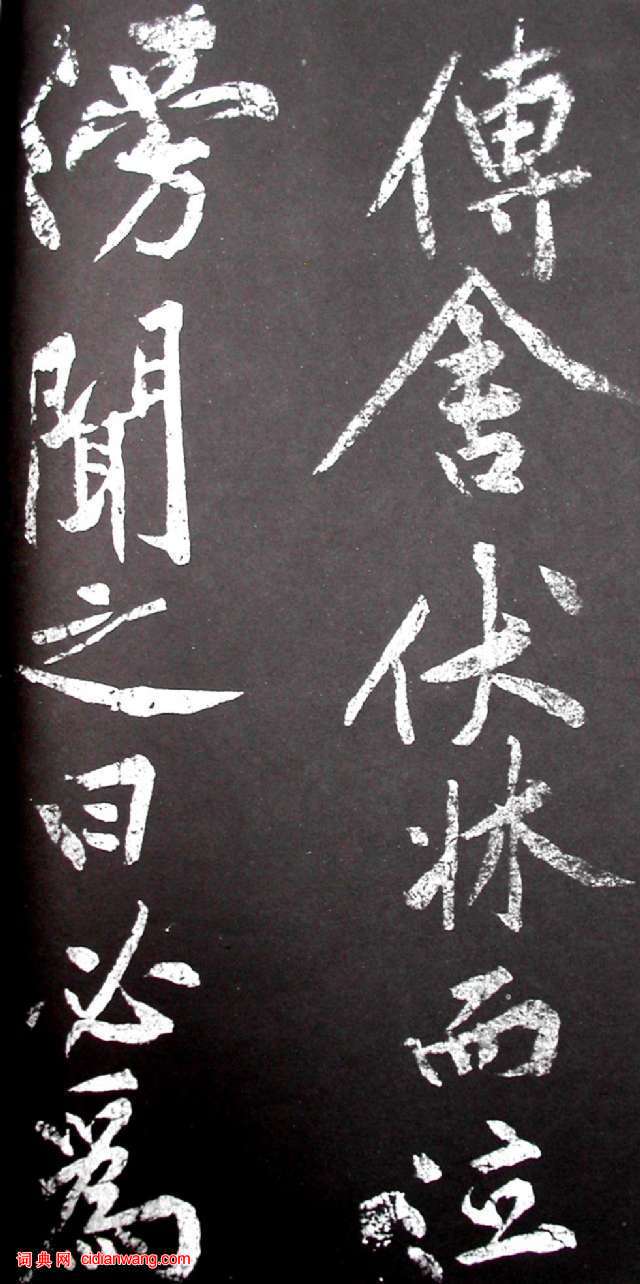 傳舍伏牀而泣
傍聞之曰必爲
词典网 cidianwang.com